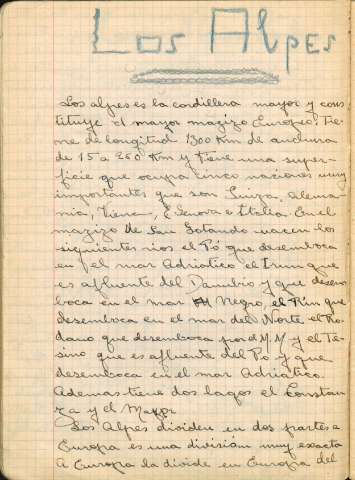 Los Alpes
Los alpes es la cordillera mayor y cons
tituye el mayor mazizo Europeo. Tie-
ne de longitud 1300 Km de anchura
de 15 a 250 Km y tiene una super-
ficie que ocupa cinco naciones muy
importantes que son Suiza, Alema-
nia, Viena, Genova e Italia. En el
mazizo de San Gotardo nacen los
siguientes rios el Pó que desemboca
en el mar Adriatico el Inn que
es afluente del Danubio y que desem
boca en el mar Negro, el Rin que
desemboca en el mar del Norte el Ro-
dano que desemboca por el M.M y el Te-
sino que es afluente del Po y que
desemboca en el mar Adriatico.
Ademas tiene dos lagos el Constan
za y el Mayor
Los Alpes dividen en dos partes a
Europa es una división muy exacta
A Europa la divide en Europa del